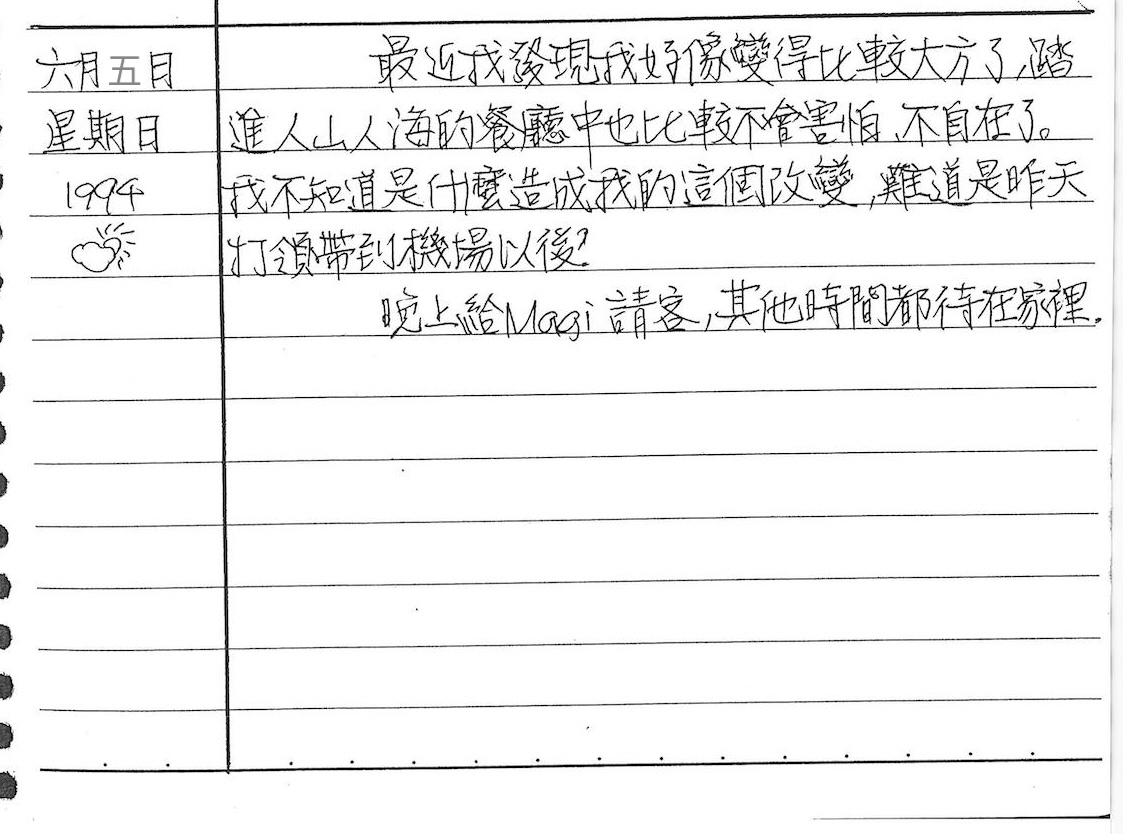 六月五日
星期日
1994
最近我發現我好像變得比較大方了,踏
進人山人海的餐廳中也比較不會害怕、不自在了。
我不知道是什麼造成我的這個改變,難道是昨天
打領帶到機場以後?
晚上給Magi請客,其他時間都待在家裡.